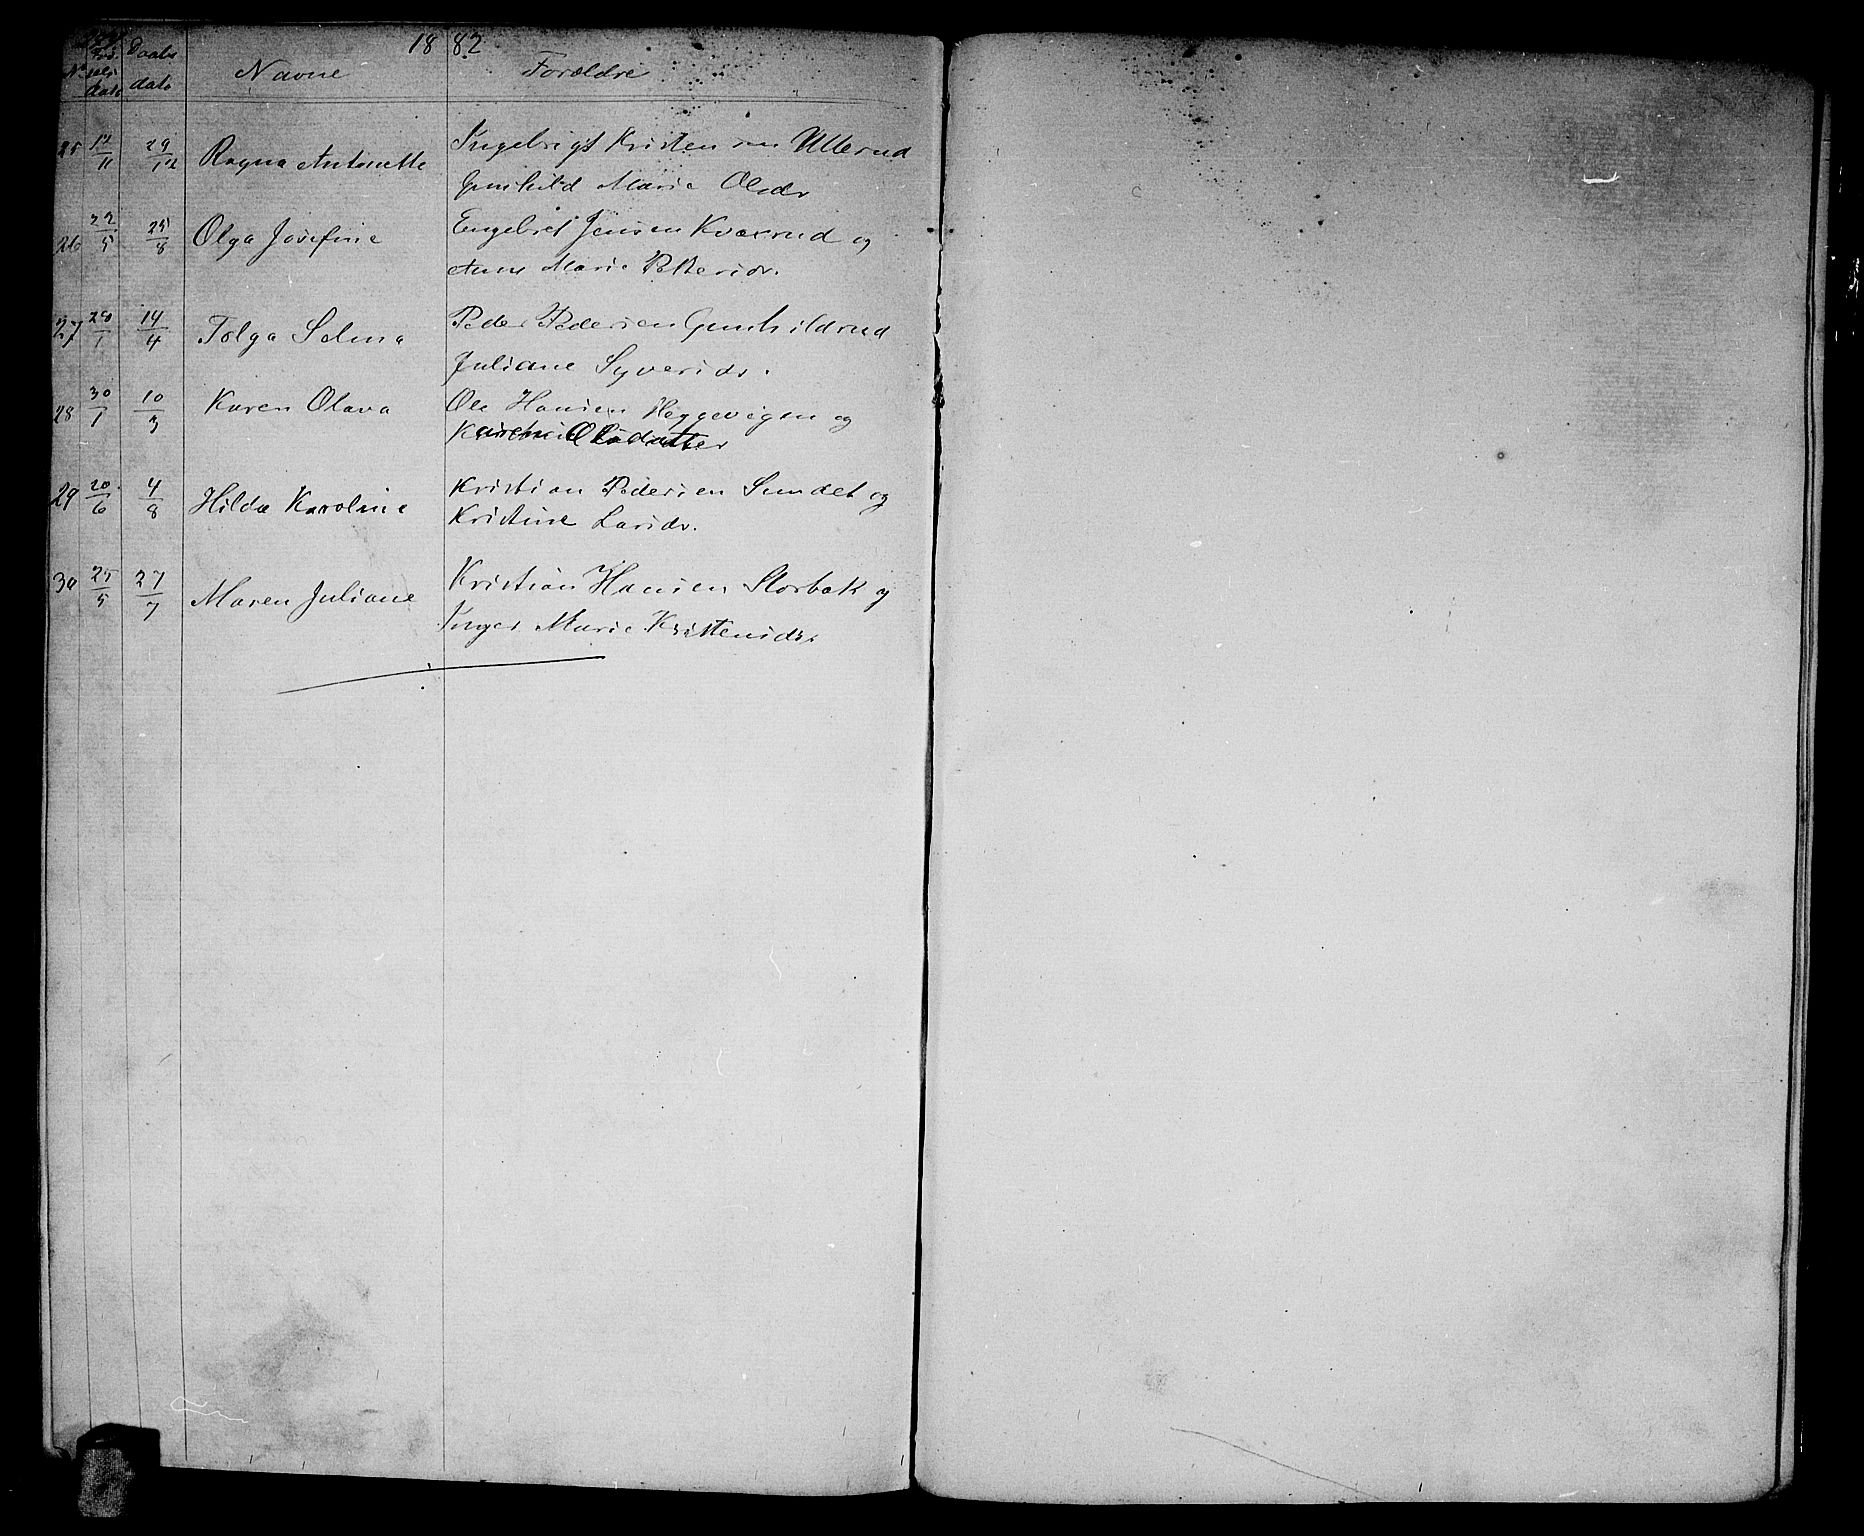 18 82
No Fød selsdato Daabsdato Navne Forældre
25 12/11 29/12 Ragna Antonette Ingebrigt Kristensen Ullerud
Gunhild Marie Olsdr
26 22/5 25/8 Olga Josefine Engelbret Jensen Kværrud og
Anne Marie Pettersdr.
27 28/1 14/4 Tolga Selma Peder Pedersen Gunhildrud
Juliane Syversdr.
28 30/1 10/3 Karen Olava Ole Hansen Heggevigen og
Karen Olsdatter
29 20/6 4/8 Hilda Karoline Kristian Pedersen Sundet og
Kristine Larsdr.
30 25/5 27/7 Maren Juliane Kristian Hansen Storbæk og
Inger Marie Kristensdr.